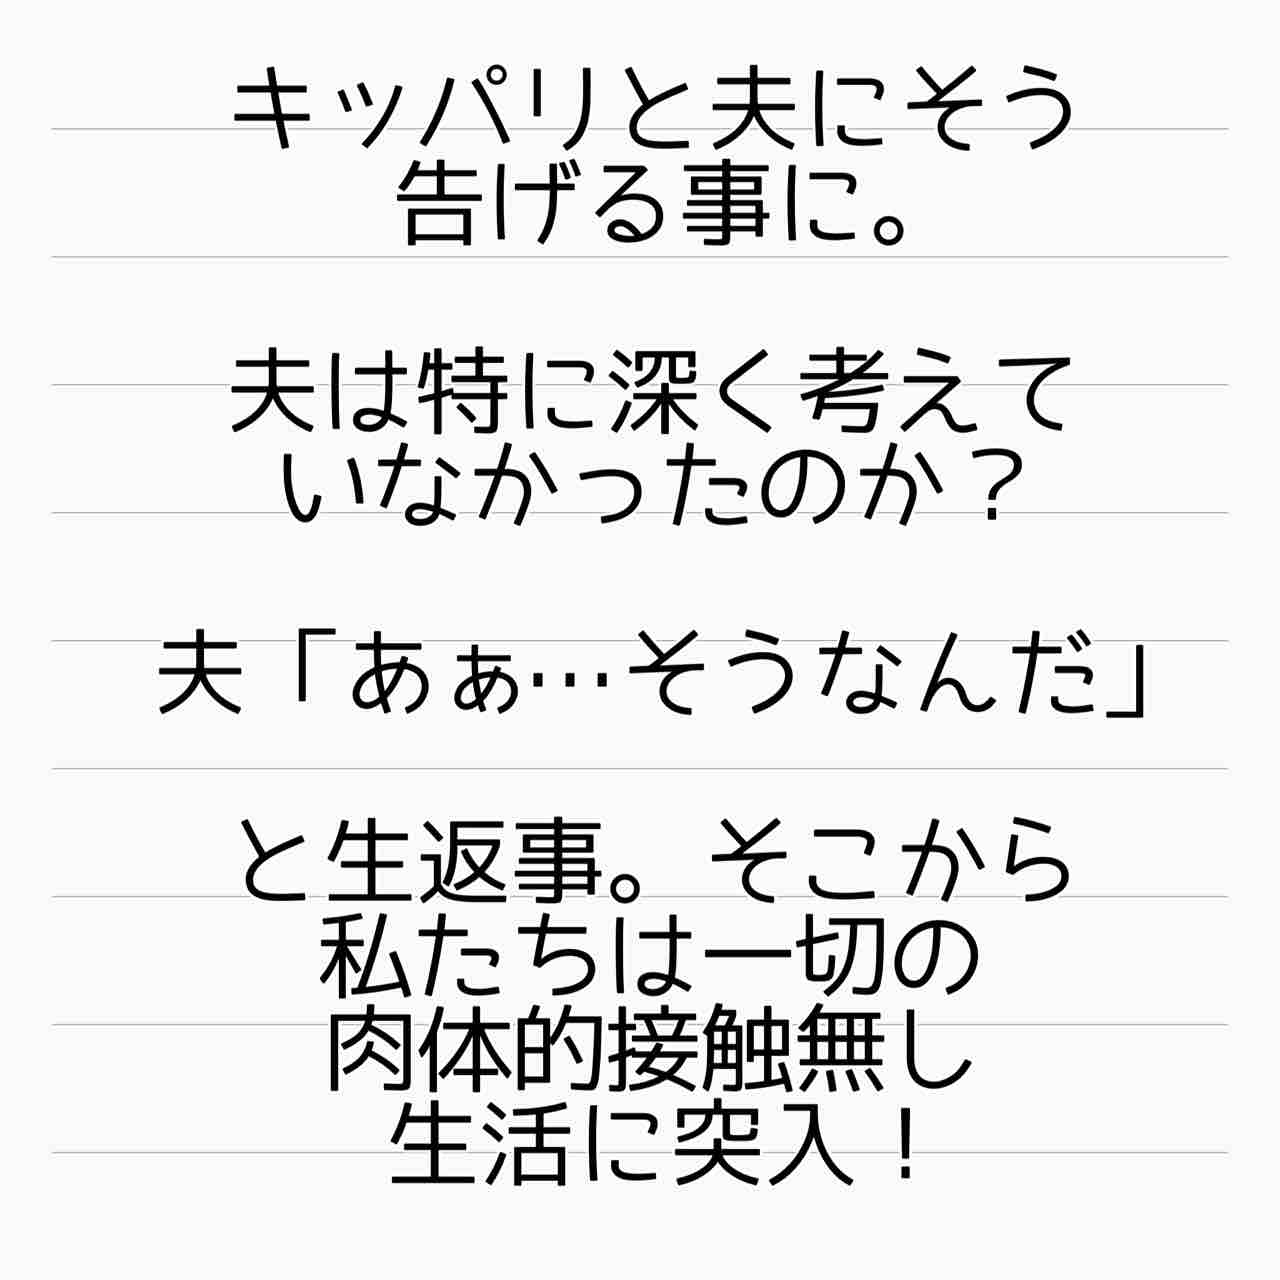 キッパリと夫にそう
告げる事に。
夫は特に深く考えて
いなかったのか？
夫「あぁ…そうなんだ」
と生返事。そこから
私たちは一切の
肉体的接触無し
生活に突入！